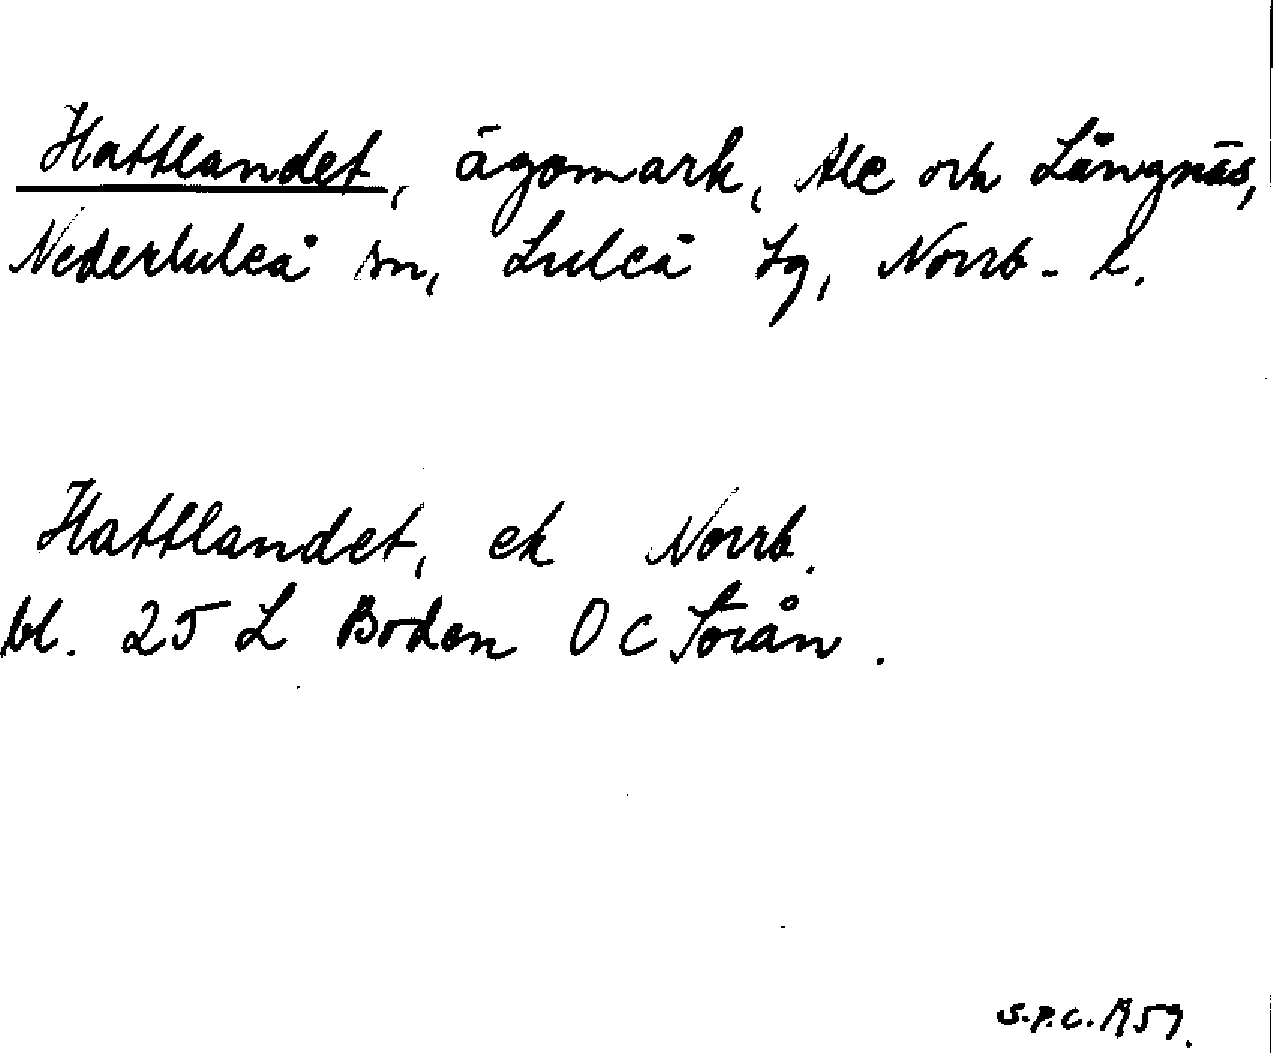 Hattlandet, ägomark, Ale och Långnäs,
Nederluleå sn, Luleå tg, Norrb. l.
Hattlandet, ek Norrb.
bl. 25 L Boden 0 c Sörån.
S.P.C. 1959.